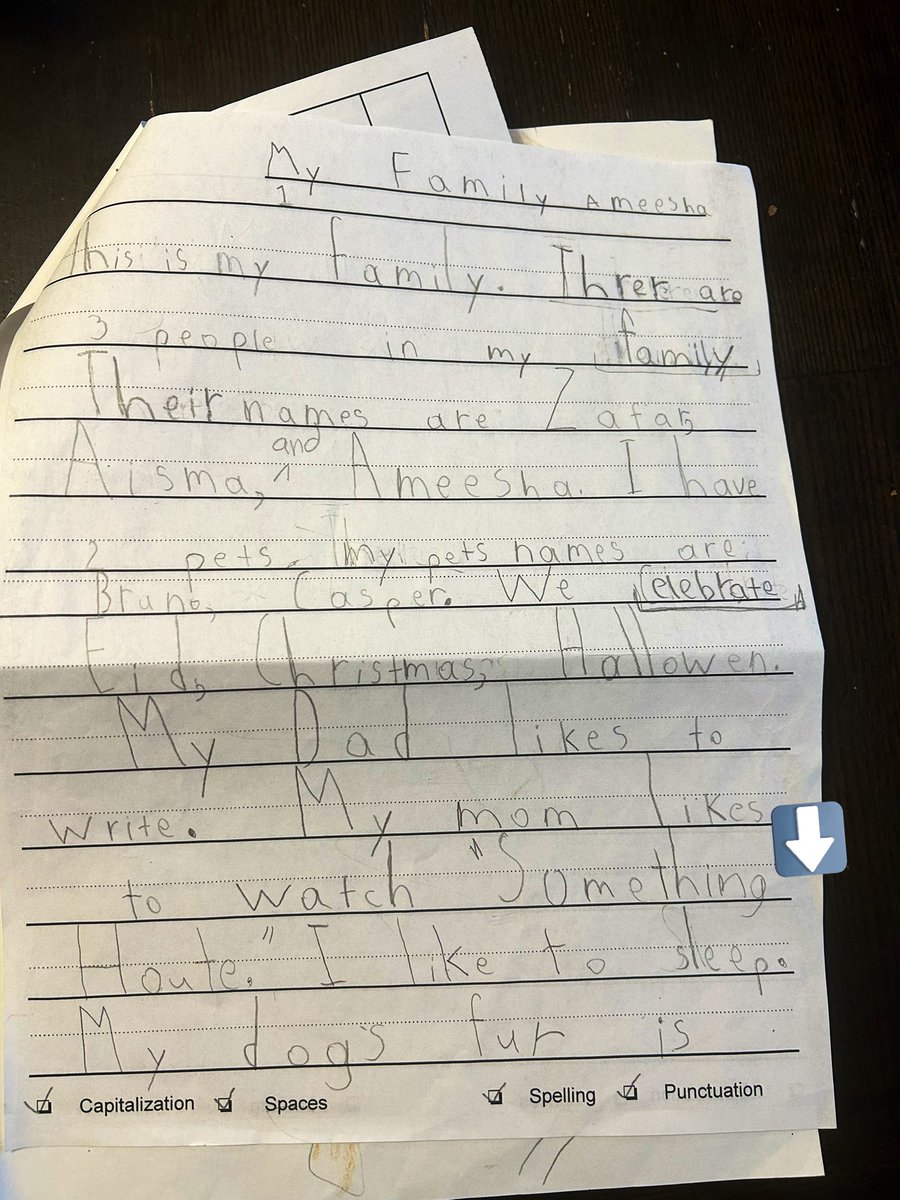 My Family Ameesha
1
This is my family. There are
3 people in my family
Their names are Zafar,
and
Aisma, ^ Ameesha. I have
2 pets. my pets names are
Bruno, Casper. We Celebrate
Eid, Christmas, Hallowen.
My Dad likes to
write. My mom likes
to watch "Something
Haute." I like to sleep.
My dog's fur is
Capitalization Spaces Spelling Punctuation